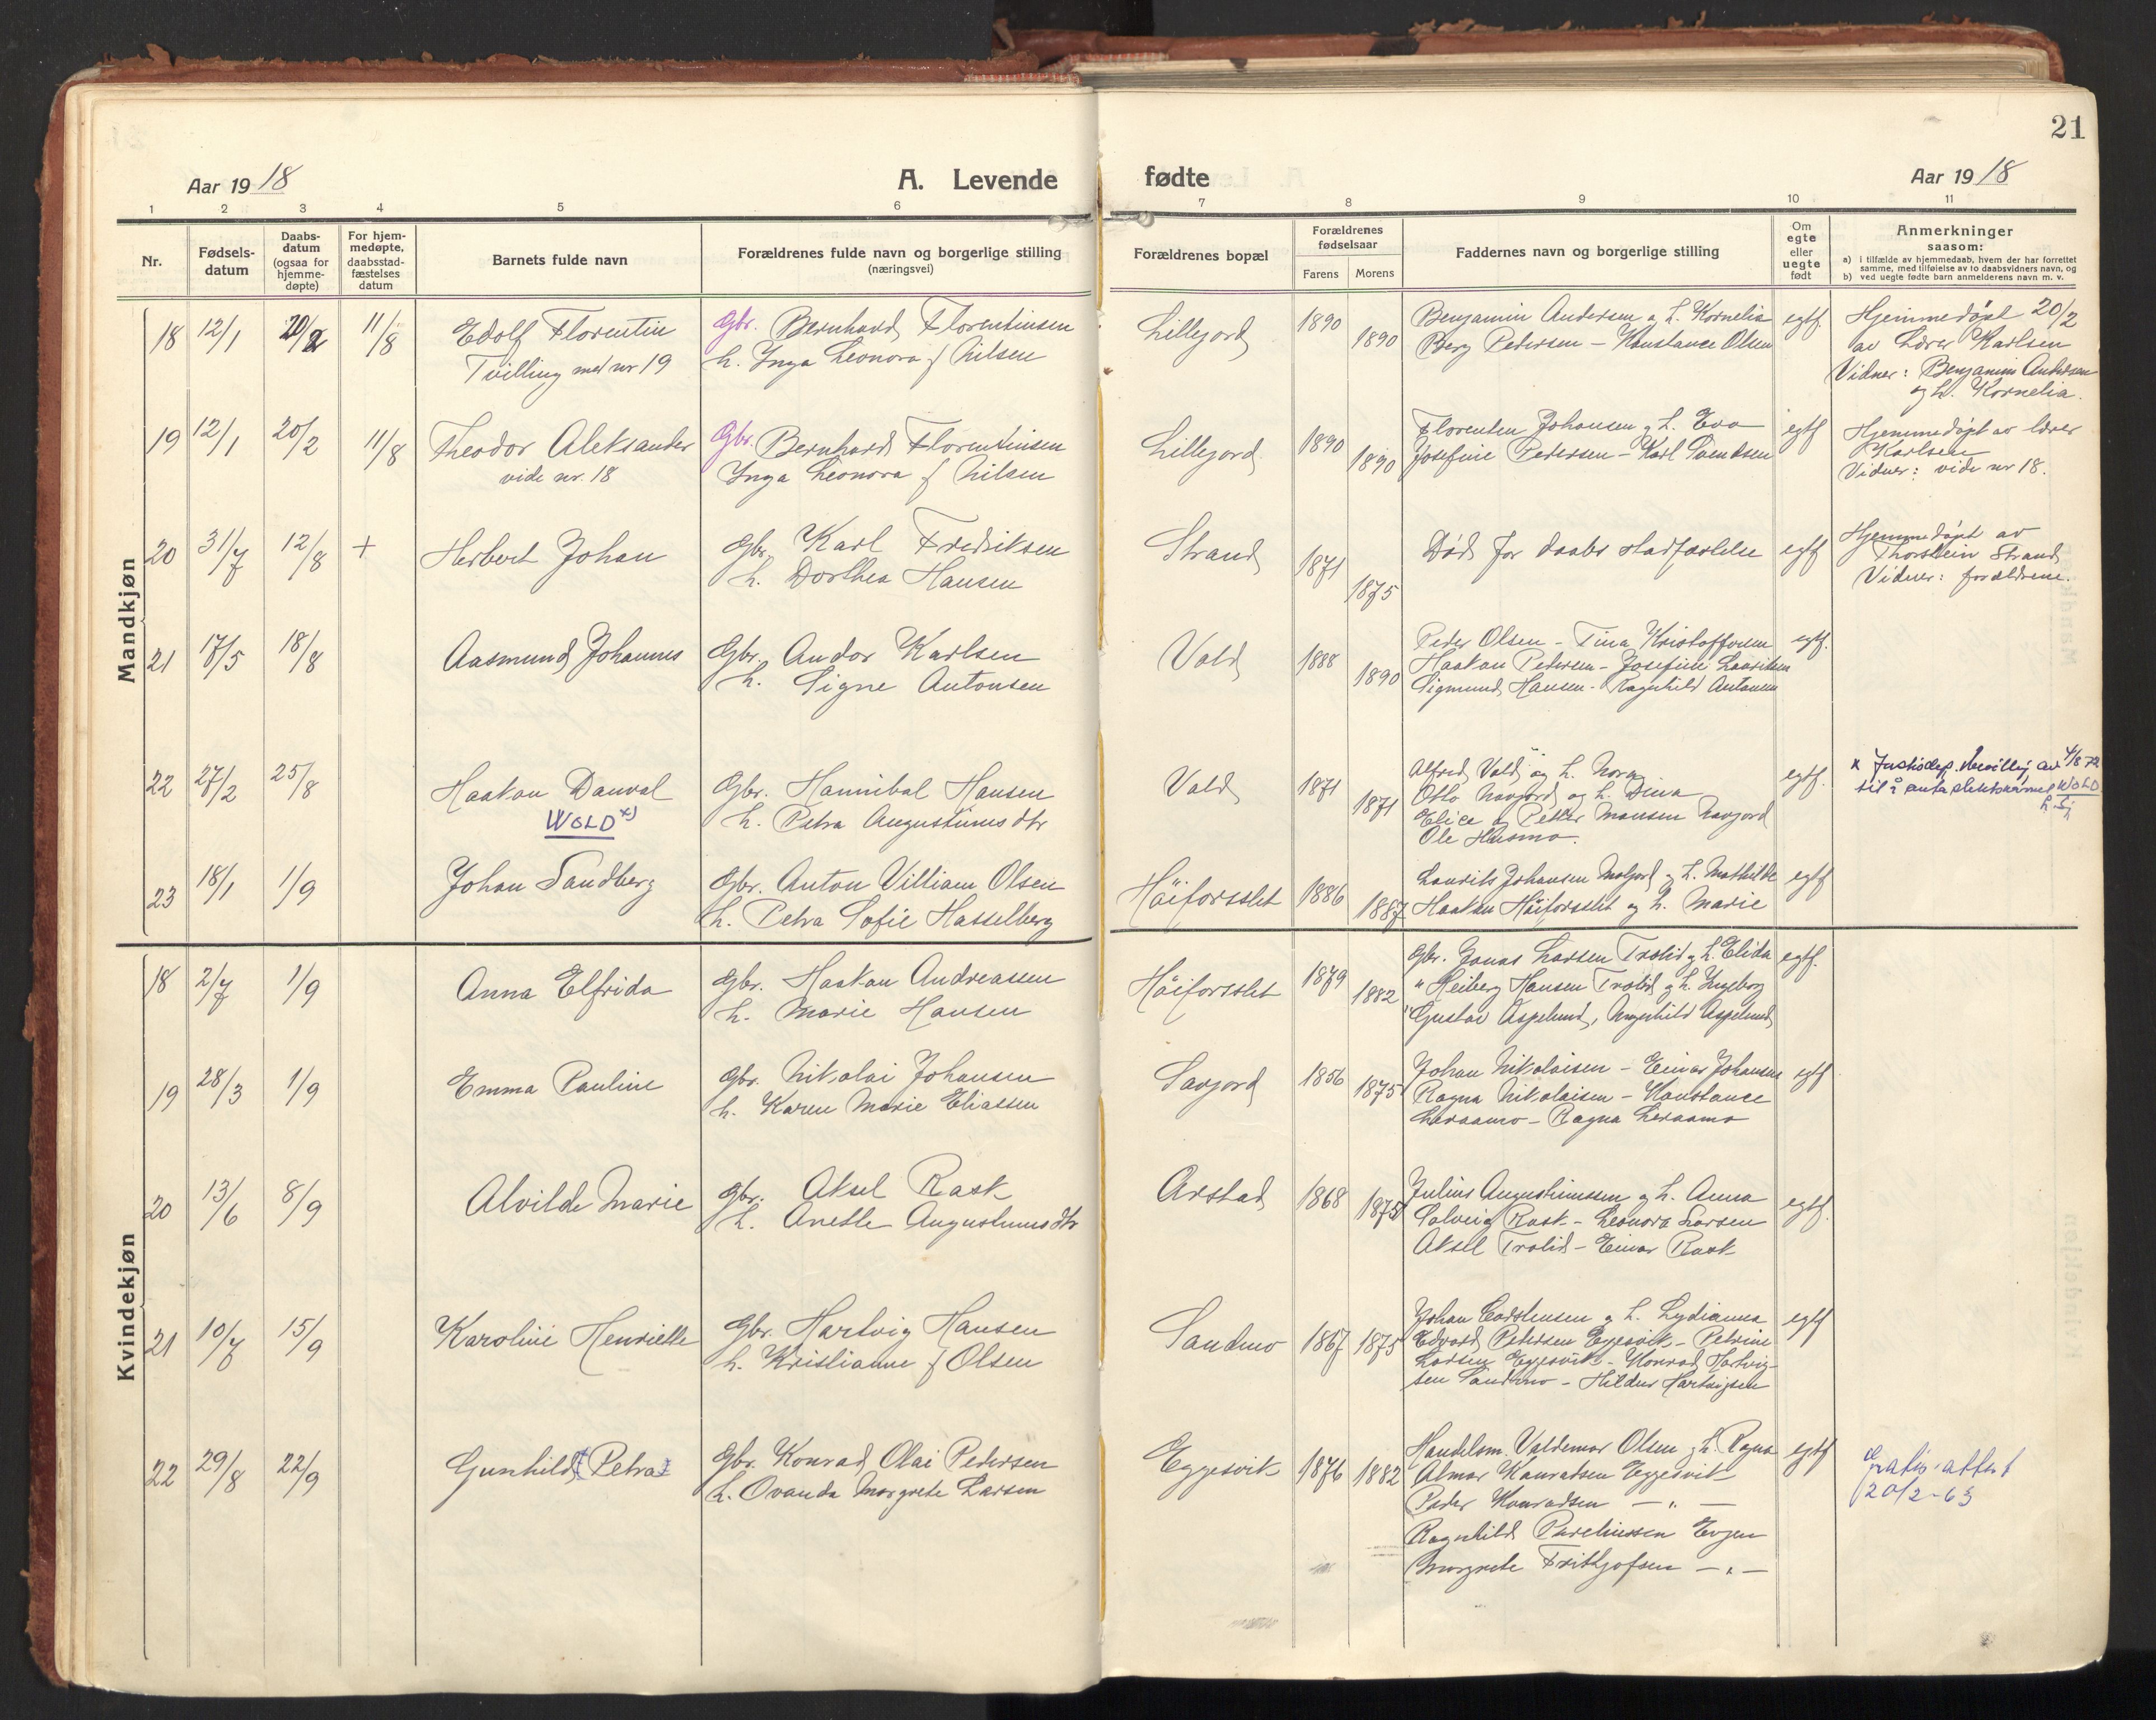 21
Aar 1918
A. Levende fødte
Aar 1918
1 2 3 4 5 6 7 8 9 10 11
Nr.
Fødsels-
datum
Daabs-
datum
(ogsaa for
hjemme-
døpte)
For hjem-
medøpte,
daabsstad-
fæstelses
datum
Barnets fulde navn
Forældrenes fulde navn og borgerlige stilling
(næringsvei)
Forældrenes bopæl
Forældrenes
fødselsaar
Farens Morens
Faddernes navn og borgerlige stilling
Om
egte
eller
uegte
født
Anmerkninger
saasom:
a) i tilfælde av hjemmedaab, hvem der har forrettet
samme, med tilføielse av to daabsvidners navn, og
b) ved uegte fødte barn anmelderens navn m. v.
Mandkjøn
18 12/1 20/2 11/8
Edolf Florentin
Tvilling med nr 19
Gbr. Bernhard Florentinsen
h. Inga Leonora f Nilsen
Lillejord 1890 1890
Benjamin Andersen og h. Kornelia
Berg Pedersen - Konstance Olsen
egtf.
Hjemmedøpt 20/2
av Lærer Karlsen
Vidner: Benjamin Andersen
og h. Kornelia.
19 12/1 20/2 11/8
Theodor Aleksander
vide nr. 18
Gbr. Bernhard Florentinsen
Inga Leonora f Nilsen
Lillejord 1890 1890
Florentin Johansen og h. Eva
Josefine Pedersen - Karl Svendsen
egtf
Hjemmedøpt av lærer
Karlsen
Vidner: vide nr 18.
20 31/7 12/8 +
Herbert Johan
Gbr. Karl Fredriksen
h. Dorthea Hansen
Strand 1871 1875
Død før daabsstadfæstelse
egtf
Hjemmedøpt av
Thorstein Strand
Vidner: forældrene.
21 17/5 18/8
Aasmund Johannes
Gbr. Andor Karlsen
h. Signe Antonsen
Vold 1888 1890
Peder Olsen - Tina Kristoffersen
Haakon Pedersen - Josefine Lauritsen
Sigmund Hansen - Ragnhild Antonsen
egtf.
22 27/2 25/8
Haakon Danval
WOLD x)
Gbr. Hannibal Hansen
h. Petra Augustinusdtr
Vold 1871 1871
Alfred Vold og h. Nora
Otto Navjord og h. Dina
Elise og Petter Monsen Navjord
Ole Husmo.
egtf.
x Justisdep. bevillig av 4/8 72
til å anta slektsnavnet WOLD
23 18/1 1/9
Johan Sandberg
Gbr. Anton Villiam Olsen
h. Petra Sofie Hasselberg
Høiforsslet 1886 1887
Laurits Johansen Moljord og h. Mathilde
Haakon Høiforsslet og h. Marie
egtf
Kvindekjøn
18 2/7 1/9
Anna Elfrida
Gbr. Haakon Andreassen
h. Marie Hansen
Høiforsslet 1879 1882
Gbr. Jonas Larsen Trolid og h. Elida
" Heiberg Hansen Trolid og h. Ingeborg
" Gustav Aspelund, Magnhild Aspelund
egtf.
19 28/3 1/9
Emma Pauline
Gbr. Nikolai Johansen
h. Karen Marie Eliassen
Savjord 1856 1875
Johan Nikolaisen - Einar Johansen
Ragna Nikolaisen - Konstance
Leraamo - Ragna Leraamo
egtf
20 13/6 8/9
Alvilde Marie
Gbr. Aksel Rask
h. Anette Augustinusdtr
Arstad 1868 1875
Julius Augustinussen og h. Anna
Solveig Rask - Leonora Larsen
Aksel Trolid - Einar Rask
egtf.
21 10/7 15/9
Karoline Henriette
Gbr. Hartvig Hansen
h. Kristianne f Olsen
Sandmo 1867 1875
Johan Carstensen og h. Lydianna
Edvard Petersen Eggesvik - Petrine
Larsen Eggesvik - Konrad Hartvig-
sen Sandmo - Hildur Hartvigsen
egtf
22 29/8 22/9
Gunhild Petra
Gbr. Konrad Olai Pedersen
h. Ovanda Margrete Larsen
Eggesvik 1876 1882
Handelsm. Valdemar Olsen og h. Ragna
Almar Konradsen Eggesvik
Peder Konradsen — " —
Ragnhild Pareliussen Evjen
Margrete Frithjofsen — " —
egtf
Gratis attest
20/2-63